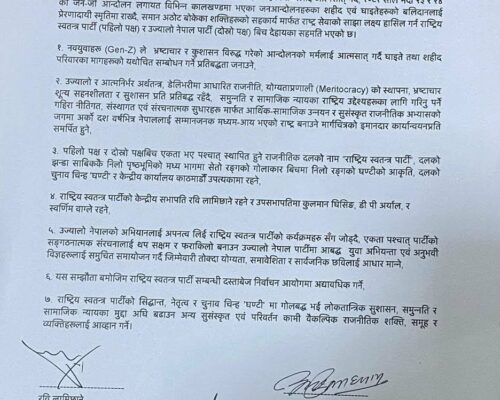 का जेन-जी आन्दोलन लगायत विभिन्न कालखण्डमा भएका जनआन्दोलनका शहीद एवं घाइतेहरुको बलिदानलाई
प्रेरणादायी स्मृतिमा राख्दै, समान अठोट बोकेका शक्तिहरुको सहकार्य मार्फत राष्ट्र सेवाको साझा लक्ष्य हासिल गर्न राष्ट्रिय
स्वतन्त्र पार्टी (पहिलो पक्ष) र उज्यालो नेपाल पार्टी (दोस्रो पक्ष) बिच देहायका सहमति भएको छ।
१. नवयुवाहरु (Gen-Z) ले भ्रष्टाचार र कुशासन विरुद्ध गरेको आन्दोलनको मर्मलाई आत्मसात् गर्दै घाइते तथा शहीद
परिवारका मागहरुको यथोचित सम्बोधन गर्ने प्रतिबद्धता जनाउने,
२. उज्यालो र आत्मनिर्भर अर्थतन्त्र, डेलिभरीमा आधारित राजनीति, योग्यताप्रणाली (Meritocracy) को स्थापना, भ्रष्टाचार
शून्य सहनशीलता र सुशासन प्रति प्रतिबद्ध रहँदै, समुन्नति र सामाजिक न्यायका राष्ट्रिय उद्देश्यहरुका लागि गरिनु पर्ने
गहिरा नीतिगत, संस्थागत एवं संरचनात्मक सुधारहरु मार्फत आर्थिक-सामाजिक उन्नयन र सुसंस्कृत राजनीतिक अभ्यासको
जगमा अर्को दश वर्षभित्र नेपाललाई सम्मानजनक मध्यम-आय भएको राष्ट्र बनाउने मार्गचित्रको इमानदार कार्यान्वयनप्रति
समर्पित हुने,
३. पहिलो पक्ष र दोस्रो पक्षबिच एकता भए पश्चात् स्थापित हुने राजनीतिक दलको नाम "राष्ट्रिय स्वतन्त्र पार्टी", दलको
झन्डा साबिककै निलो पृष्ठभूमिको मध्य भागमा सेतो रङ्गको गोलाकार बिचमा निलो रङ्गको घण्टीको आकृति, दलको
चुनाव चिन्ह 'घण्टी' र केन्द्रीय कार्यालय काठमाडौं उपत्यकामा रहने,
४. राष्ट्रिय स्वतन्त्र पार्टीको केन्द्रीय सभापति रवि लामिछाने रहने र उपसभापतिमा कुलमान घिसिङ, डी पी अर्याल, र
स्वर्णिम वाग्ले रहने.
५. उज्यालो नेपालको अभियानलाई अपनत्व लिई राष्ट्रिय स्वतन्त्र पार्टीको कार्यक्रमहरु सँग जोड्दै, एकता पश्चात् पार्टीको
सङ्गठनात्मक संरचनालाई थप सक्षम र फराकिलो बनाउन उज्यालो नेपाल पार्टीमा आबद्ध युवा अभियन्ता एवं अनुभवी
विज्ञहरुलाई समुचित समायोजन गर्दै जिम्मेवारी तोक्दा योग्यता, समावेशिता र सार्वजनिक छविलाई आधार मान्ने,
६. यस सम्झौता बमोजिम राष्ट्रिय स्वतन्त्र पार्टी सम्बन्धी दस्ताबेज निर्वाचन आयोगमा अद्यावधिक गर्ने,
७. राष्ट्रिय स्वतन्त्र पार्टीको सिद्धान्त, नेतृत्व र चुनाव चिन्ह 'घण्टी' मा गोलबद्ध भई लोकतान्त्रिक सुशासन, समुन्नति र
सामाजिक न्यायका मुद्दा अघि बढाउन अन्य सुसंस्कृत एवं परिवर्तन कामी वैकल्पिक राजनीतिक शक्ति, समूह र
व्यक्तिहरुलाई आव्हान गर्ने।
रवि लामिछाने